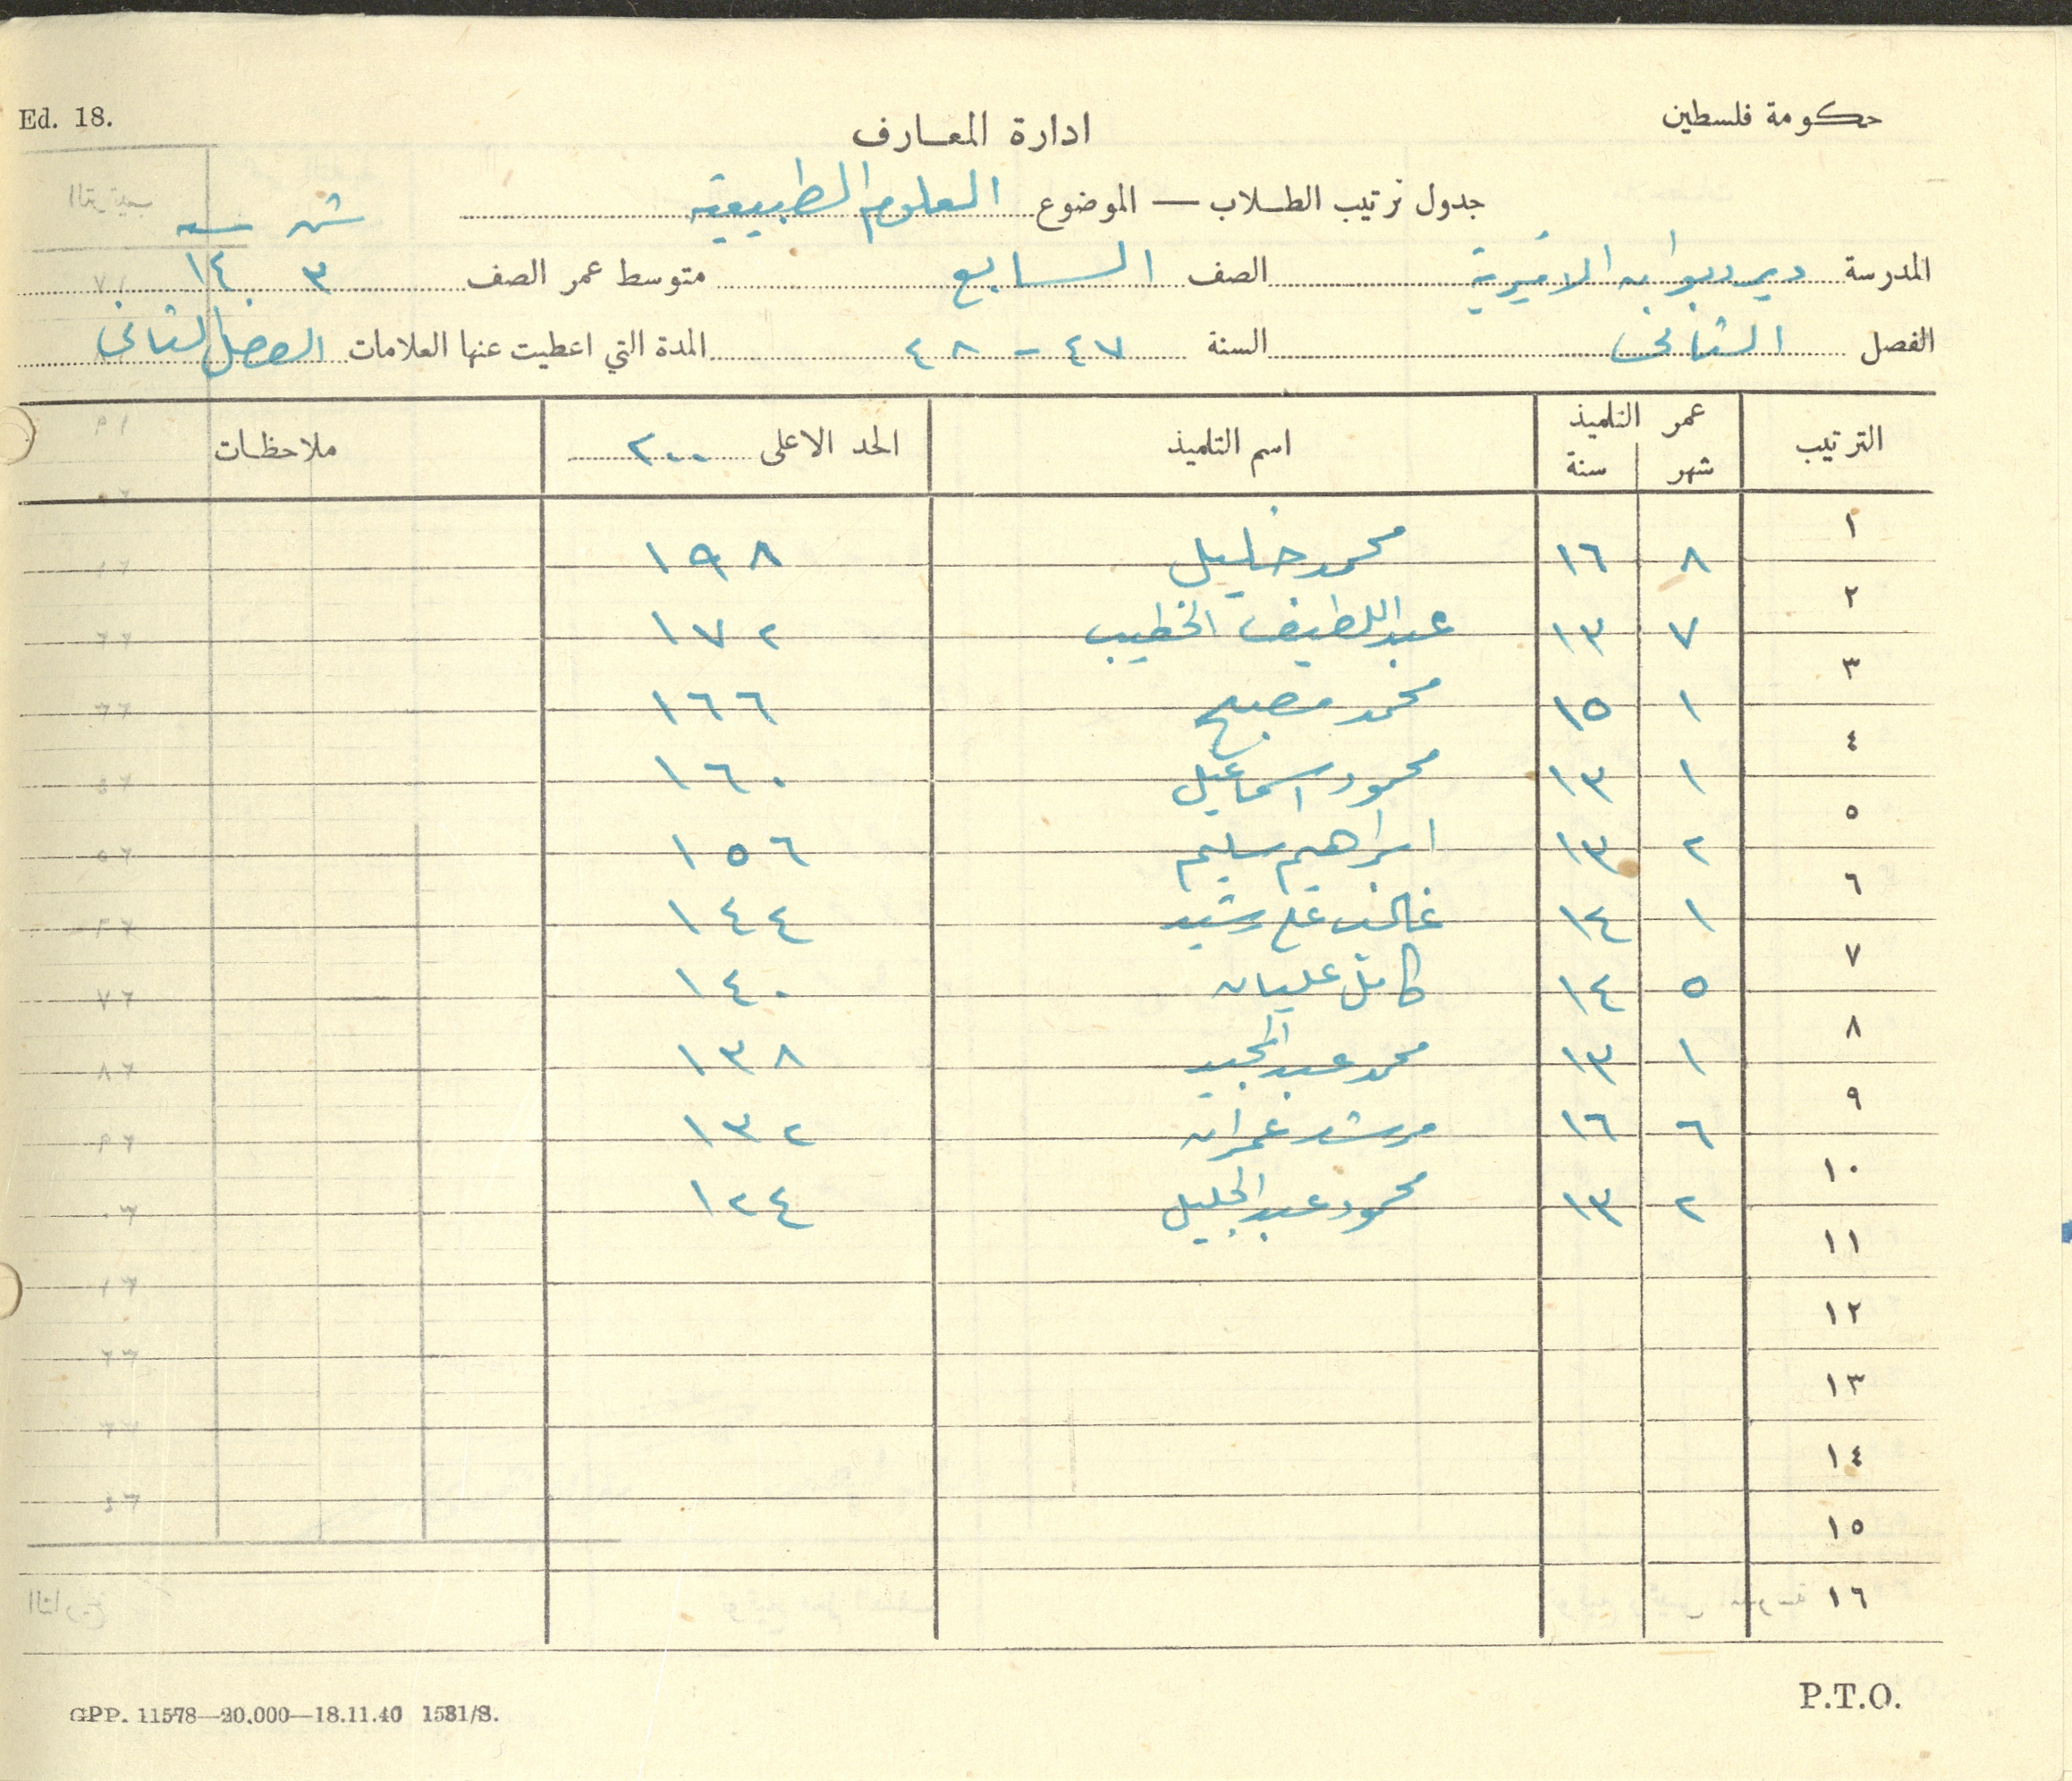 Ed. 18.
حكومة فلسطين
ادارة المعارف
جدول ترتيب الطلاب — الموضوع العلوم الطبيعية
شهر سنه
المدرسة دير دبوان الاميرية الصف السابع متوسط عمر الصف ٣ ١٤
الفصل الثاني السنة ٤٧ - ٤٨ المدة التي اعطيت عنها العلامات الفصل الثاني
الترتيب عمر التلميذ شهر سنة اسم التلميذ الحد الاعلى ٢٠٠ ملاحظات
١ ٨ ١٦ محمد خليل ١٩٨
٢ ٧ ١٣ عبد اللطيف الخطيب ١٧٢
٣ ١ ١٥ محمد مصبح ١٦٦
٤ ١ ١٣ محمود اسماعيل ١٦٠
٥ ٢ ١٣ ابراهيم سليم ١٥٦
٦ ١ ١٤ غالب علي رشيد ١٤٤
٧ ٥ ١٤ كامل عليان ١٤٠
٨ ١ ١٣ محمد عبد المجيد ١٣٨
٩ ٦ ١٦ مرشد عمران ١٣٢
١٠ ٢ ١٣ محمود عبد الجليل ١٢٤
١١
١٢
١٣
١٤
١٥
١٦
P.T.O.
GPP. 11578—20.000—18.11.46 1531/S.